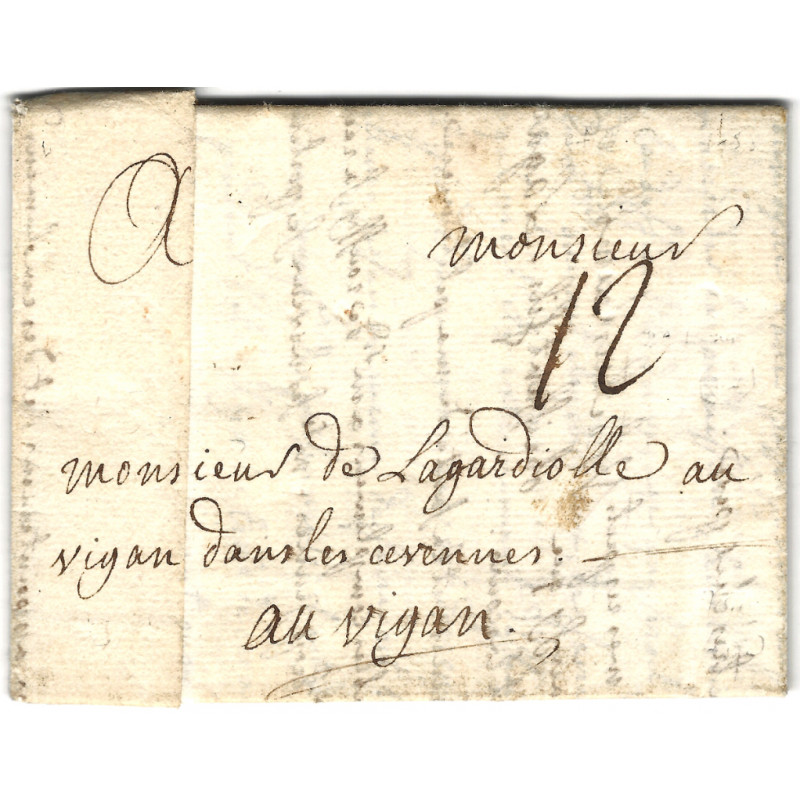 A monsieur
12
monsieur de Lagardiolle au
vigan dans les cevennes.
au vigan.